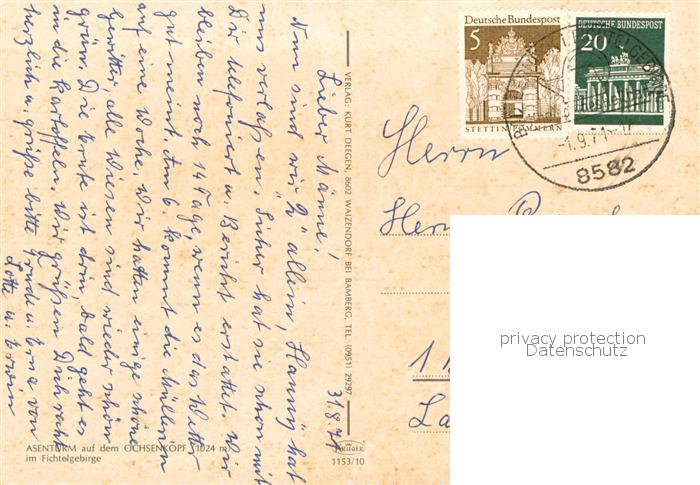 Deutsche Bundespost
5
STETTIN/POMMERN
DEUTSCHE BUNDESPOST
20
-1.9.71-17
8582
Herrn
1
La
privacy protection
Datenschutz
VERLAG: KURT DEEGEN, 8602 WAIZENDORF BEI BAMBERG, TEL. (0951) 29297
KRÜGER
1153/10
ASENTURM auf dem OCHSENKOPF (1024 m)
im Fichtelgebirge
31.8.71
Lieber Männe!
Nun sind wir "2" allein, Hanny hat
uns verlassen. Sicher hat sie schon mit
Dir telefoniert u. Bericht erstattet. Wir
bleiben noch 14 Tage, wenn es das Wetter
gut meint. Am 6. kommt die Müllerin
auf eine Woche. Wir hatten einige schöne
Gewitter, alle Wiesen sind wieder schön
grün. Die Ernte ist drin, bald geht es
in die Kartoffeln. Wir grüßen Dich recht
herzlich u. grüße bitte u. Erna von
Lotte u. Erwin